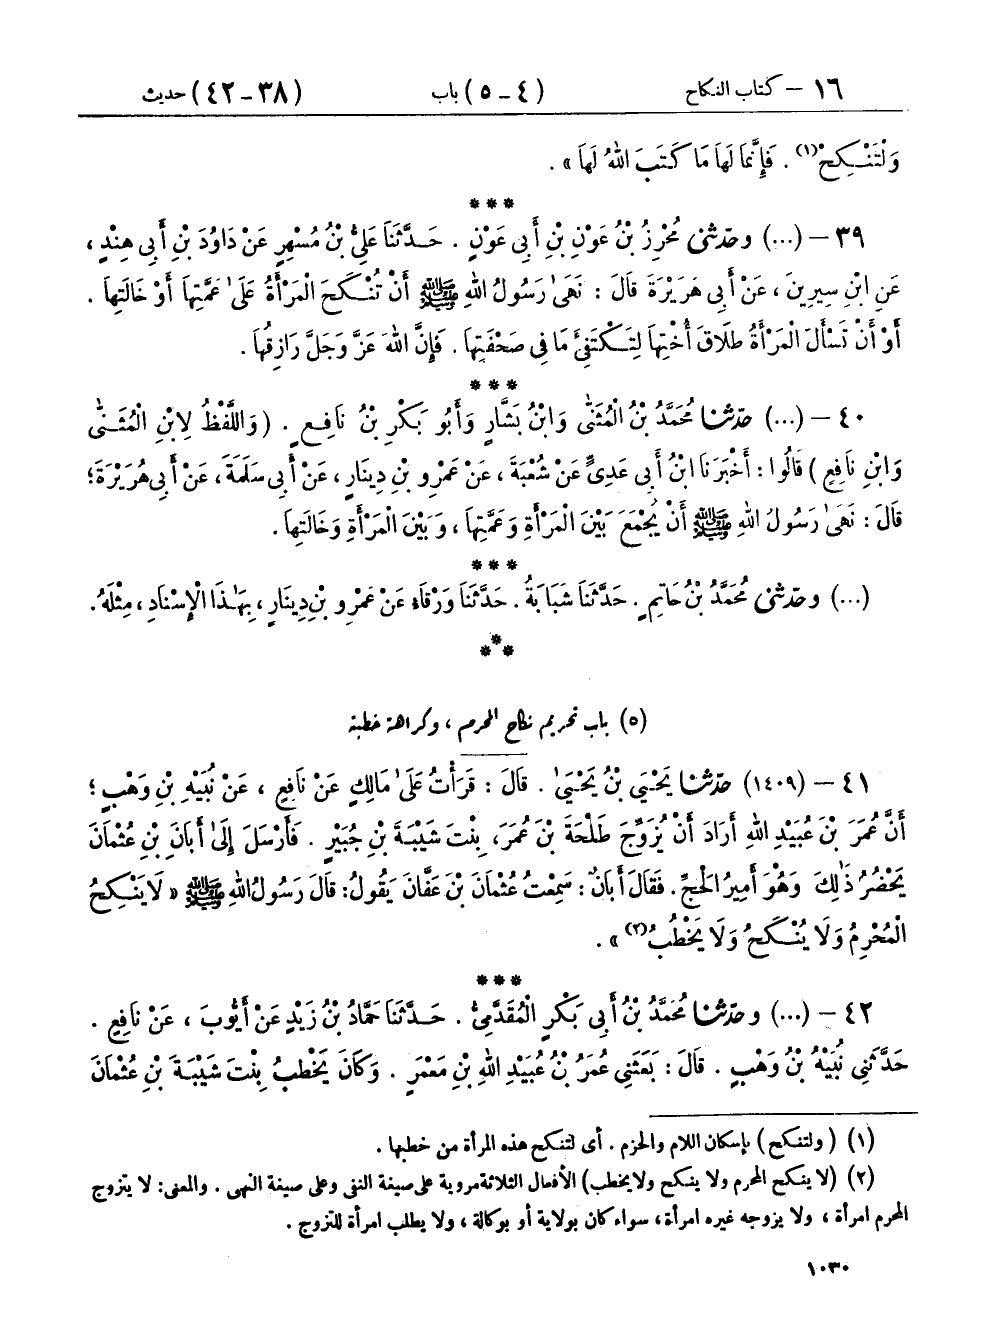 ١٦ – كتاب النكاح (٤ – ٥) باب (٣٨–٤٢) حديث
وَلْتَنْكِحْ(١) . فَإِنَّمَا لَهَا مَا كَتَبَ اللهُ لَهَا » .
***
٣٩ – (...) وحدثنى مُحْرِزُ بْنُ عَوْنِ بْنِ أَبِى عَوْنٍ . حَدَّثَنَا عَلِىُّ بْنُ مُسْهِرٍ عَنْ دَاوُدَ بْنِ أَبِى هِنْدٍ ،
عَنِ ابْنِ سِيرِينَ ، عَنْ أَبِى هَرَيْرَةَ قَالَ : نَهَىٰ رَسُولُ اللهِ ﷺ أَنْ تُنْكَحَ الْمَرْأَةُ عَلَىٰ عَمَّتِهَا أَوْ خَالَتِهَا .
أَوْ أَنْ تَسْأَلَ الْمَرْأَةُ طَلَاقَ أُخْتِهَا لِتَكْتَفِئَ مَا فِى صَحْفَتِهَا . فَإِنَّ اللهَ عَزَّ وَجَلَّ رَازِقُهَا .
***
٤٠ – (...) حدثنا مُحَمَّدُ بْنُ الْمُثَنَّىٰ وَابْنُ بَشَّارٍ وَأَبُو بَكْرِ بْنُ نَافِعٍ . (وَاللَّفْظُ لِابْنِ الْمُثَنَّىٰ
وَابْنِ نَافِعٍ ) قَالُوا : أَخْبَرَنَا ابْنُ أَبِى عَدِىٍّ عَنْ شُعْبَةَ ، عَنْ عَمْرِو بْنِ دِينَارٍ ، عَنْ أَبِى سَلَمَةَ ، عَنْ أَبِى هُرَيْرَةَ؛
قَالَ : نَهَىٰ رَسُولُ اللهِ ﷺ أَنْ يُجْمَعَ بَيْنَ الْمَرْأَةِ وَعَمَّتِهَا ، وَبَيْنَ الْمَرْأَةِ وَخَالَتِهَا .
***
(...) وحدثنى مُحَمَّدُ بْنُ حَاتِمٍ . حَدَّثَنَا شَبَابَةُ . حَدَّثَنَا وَرْقَاءُ عَنْ عَمْرِو بْنِ دِينَارٍ ، بِهَٰذَا الْإِسْنَادِ ، مِثْلَهُ .
***
(٥) باب تحريم نكاح المحرم ، وكراهة خطبته
٤١ – (١٤٠٩) حدثنا يَحْيَىٰ بْنُ يَحْيَىٰ . قَالَ : قَرَأْتُ عَلَىٰ مَالِكٍ عَنْ نَافِعٍ ، عَنْ نُبَيْهِ بْنِ وَهْبٍ ؛
أَنَّ عُمَرَ بْنَ عُبَيْدِ اللهِ أَرَادَ أَنْ يُزَوِّجَ طَلْحَةَ بْنَ عُمَرَ، بِنْتَ شَيْبَةَ بْنِ جُبَيْرٍ . فَأَرْسَلَ إِلَىٰ أَبَانَ بْنِ عُثْمَانَ
يَحْضُرُ ذَٰلِكَ وَهُوَ أَمِيرُ الْحَجِّ . فَقَالَ أَبَانُ : سَمِعْتُ عُثْمَانَ بْنَ عَفَّانَ يَقُولُ: قَالَ رَسُولُ اللهِ ﷺ « لَا يَنْكِحُ
الْمُحْرِمُ وَلَا يُنْكَحُ وَلَا يَخْطُبُ(٢) » .
***
٤٢ – (...) وحدثنا مُحَمَّدُ بْنُ أَبِى بَكْرٍ الْمُقَدَّمِىُّ . حَدَّثَنَا حَمَّادُ بْنُ زَيْدٍ عَنْ أَيُّوبَ ، عَنْ نَافِعٍ .
حَدَّثَنِى نُبَيْهُ بْنُ وَهْبٍ . قَالَ : بَعَثَنِى عُمَرُ بْنُ عُبَيْدِ اللهِ بْنِ مَعْمَرٍ . وَكَانَ يَخْطُبُ بِنْتَ شَيْبَةَ بْنِ عُثْمَانَ
(١) ( ولتنكح ) بإسكان اللام والجزم . أى لتنكح هذه المرأة من خطبها .
(٢) (لا ينكح المحرم ولا ينكح ولا يخطب) الأفعال الثلاثة مروية على صيغة النفى وعلى صيغة النهى . والمعنى: لا يتزوج
المحرم امرأة ، ولا يزوجه غيره امرأة ، سواء كان بولاية أو بوكالة ، ولا يطلب امرأة للتزوج .
١٠٣٠